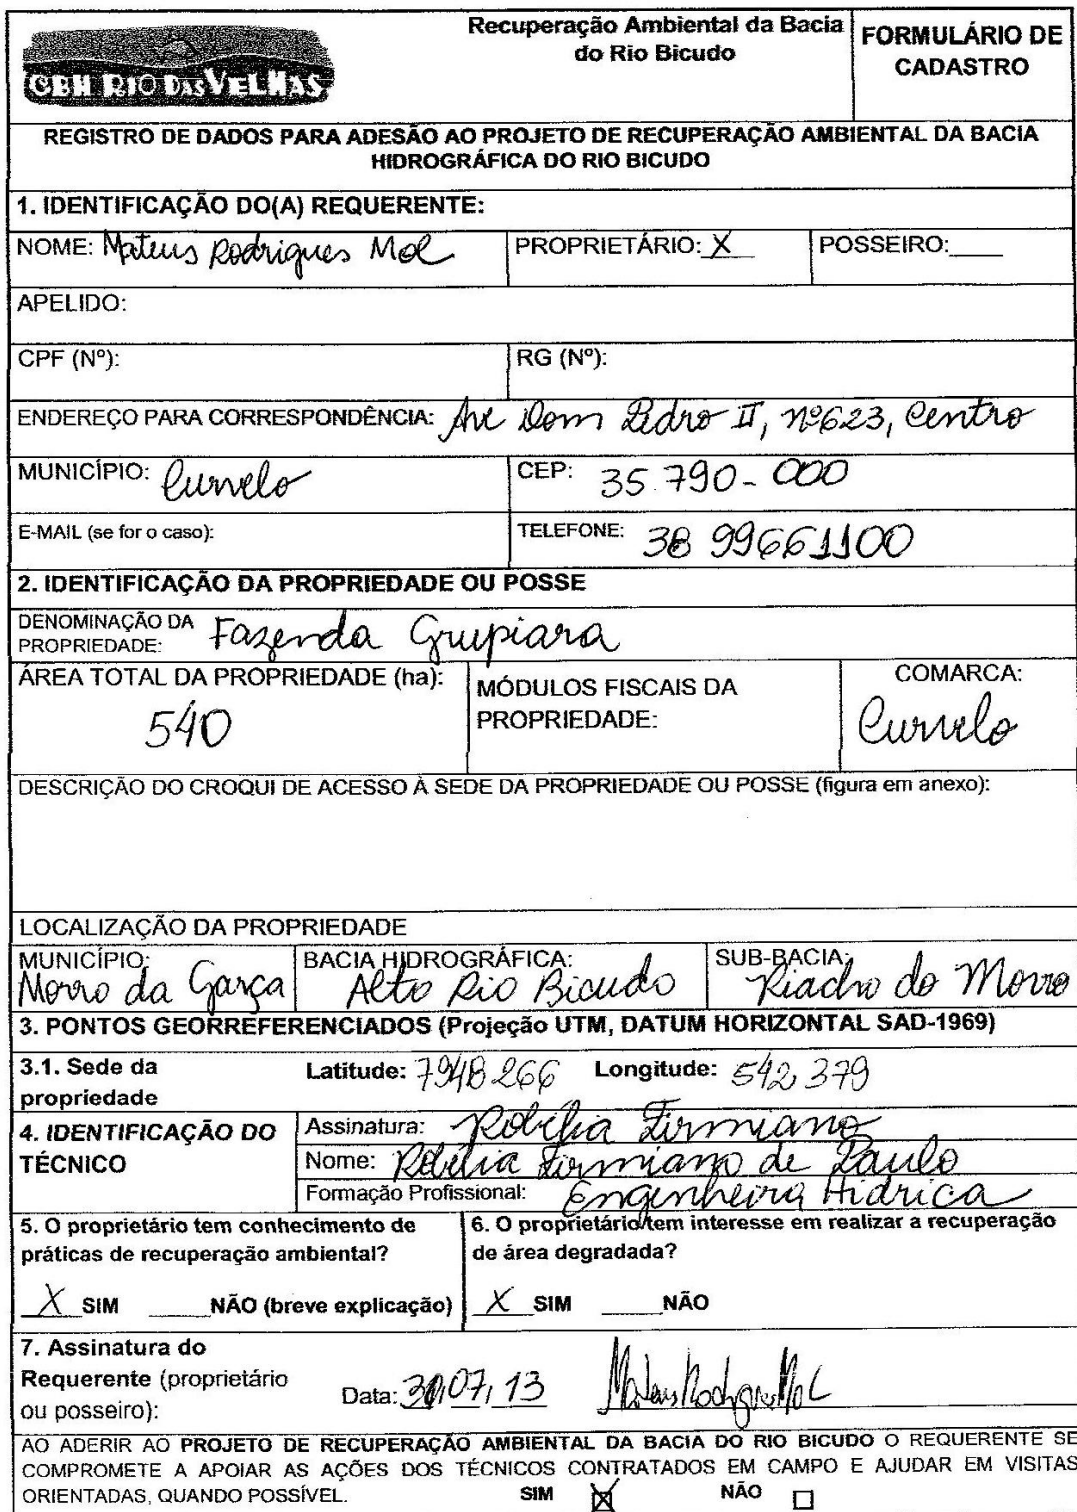 CBH RIO DAS VELHAS
Recuperação Ambiental da Bacia
do Rio Bicudo
FORMULÁRIO DE
CADASTRO
REGISTRO DE DADOS PARA ADESÃO AO PROJETO DE RECUPERAÇÃO AMBIENTAL DA BACIA
HIDROGRÁFICA DO RIO BICUDO
1. IDENTIFICAÇÃO DO(A) REQUERENTE:
NOME: Mateus Rodrigues Mol PROPRIETÁRIO: X POSSEIRO:____
APELIDO:
CPF (Nº): RG (Nº):
ENDEREÇO PARA CORRESPONDÊNCIA: Ave Dom Pedro II, nº623, Centro
MUNICÍPIO: Curvelo CEP: 35.790-000
E-MAIL (se for o caso): TELEFONE: 38 99661100
2. IDENTIFICAÇÃO DA PROPRIEDADE OU POSSE
DENOMINAÇÃO DA
PROPRIEDADE: Fazenda Grupiara
ÁREA TOTAL DA PROPRIEDADE (ha):
540
MÓDULOS FISCAIS DA
PROPRIEDADE:
COMARCA:
Curvelo
DESCRIÇÃO DO CROQUI DE ACESSO À SEDE DA PROPRIEDADE OU POSSE (figura em anexo):
LOCALIZAÇÃO DA PROPRIEDADE
MUNICÍPIO:
Morro da Garça
BACIA HIDROGRÁFICA:
Alto Rio Bicudo
SUB-BACIA:
Riacho do Morro
3. PONTOS GEORREFERENCIADOS (Projeção UTM, DATUM HORIZONTAL SAD-1969)
3.1. Sede da
propriedade
Latitude: 7948266 Longitude: 542379
4. IDENTIFICAÇÃO DO
TÉCNICO
Assinatura: Robélia Firmiano
Nome: Robélia Firmiano de Paulo
Formação Profissional: Engenheira Hidrica
5. O proprietário tem conhecimento de
práticas de recuperação ambiental?
X SIM ____NÃO (breve explicação)
6. O proprietário tem interesse em realizar a recuperação
de área degradada?
X SIM ____NÃO
7. Assinatura do
Requerente (proprietário
ou posseiro):
Data: 30/07/13 Mateus Rodrigues Mol
AO ADERIR AO PROJETO DE RECUPERAÇÃO AMBIENTAL DA BACIA DO RIO BICUDO O REQUERENTE SE
COMPROMETE A APOIAR AS AÇÕES DOS TÉCNICOS CONTRATADOS EM CAMPO E AJUDAR EM VISITAS
ORIENTADAS, QUANDO POSSÍVEL. SIM ☒ NÃO ☐